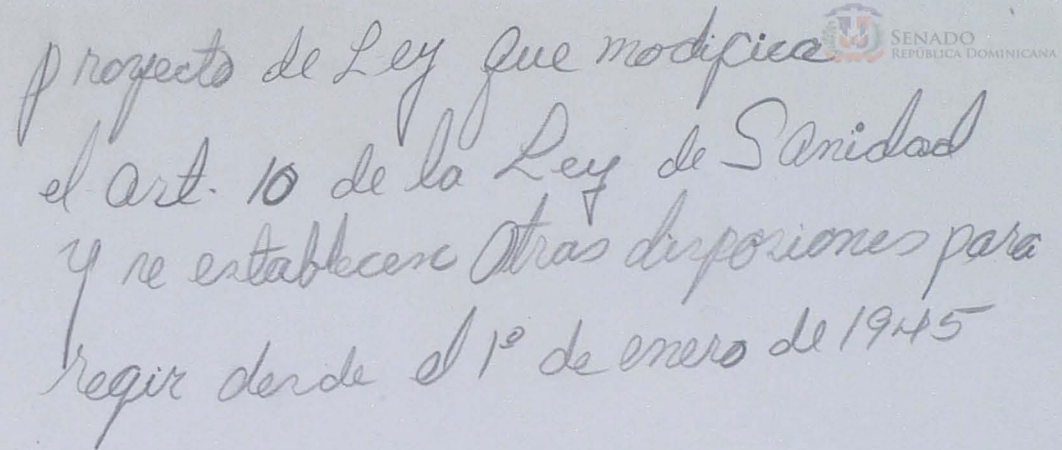 SENADO
REPÚBLICA DOMINICANA
proyecto de Ley que modifica
el art. 10 de la Ley de Sanidad
y se establecen Otras disposiones para
regir desde el 1º de enero de 1945